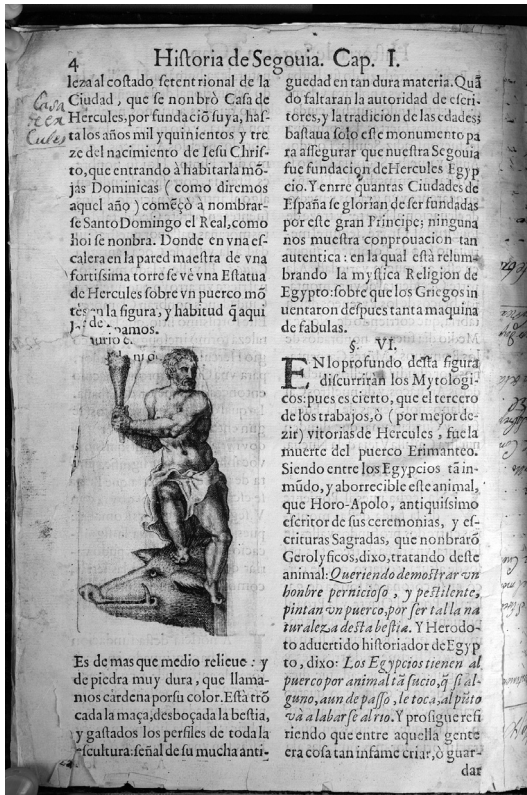 4 Historia de Segouia. Cap. I.
leza al costado setentrional de la
Ciudad, que se nonbrò Casa de
Hercules, por fundaciō suya, has-
ta los años mil y quinientos y tre
ze del nacimiento de Iesu Chris-
to, que entrando à habitarla mō-
jas Dominicas ( como diremos
aquel año ) comēçò à nombrar-
se Santo Domingo el Real, como
hoi se nonbra. Donde en vna es-
calera en la pared maestra de vna
fortissima torre se vé vna Estatua
de Hercules sobre vn puerco mō
tes en la figura, y hábitud q̄ aqui
pamos.
Es de mas que medio relieue: y
de piedra muy dura, que llama-
mos cárdena por su color. Està trō
cada la maça, desboçada la bestia,
y gastados los perfiles de toda la
escultura: señal de su mucha anti-
guedad en tan dura materia. Quā
do faltaran la autoridad de escri-
tores, y la tradicion de las edades;
bastaua solo este monumento pa
ra assegurar que nuestra Segouia
fue fundacion de Hercules Egyp
cio. Y entre quantas Ciudades de
España se glorian de ser fundadas
por este gran Principe; ninguna
nos muestra conprouacion tan
autentica: en la qual està relum-
brando la mystica Religion de
Egypto: sobre que los Griegos in
uentaron despues tanta maquina
de fabulas.
§. VI.
EN lo profundo desta figura
discurriran los Mytologi-
cos: pues es cierto, que el tercero
de los trabajos, ò ( por mejor de-
zir) vitorias de Hercules, fue la
muerte del puerco Erimanteo.
Siendo entre los Egypcios tā in-
mūdo, y aborrecible este animal,
que Horo-Apolo, antiquissimo
escritor de sus ceremonias, y es-
crituras Sagradas, que nonbrarō
Gerolyficos, dixo, tratando deste
animal: Queriendo demostrar vn
honbre pernicioso, y pestilente,
pintan vn puerco, por ser tal la na
turaleza desta bestia. Y Herodo-
to aduertido historiador de Egyp
to, dixo: Los Egypcios tienen al
puerco por animal tā sucio, q̄ si al-
guno, aun de passo, le toca, al pūto
và a labarse al rio. Y prosigue refi
riendo que entre aquella gente
era cosa tan infame criar, ò guar-
dar
Casa
de er
Cules